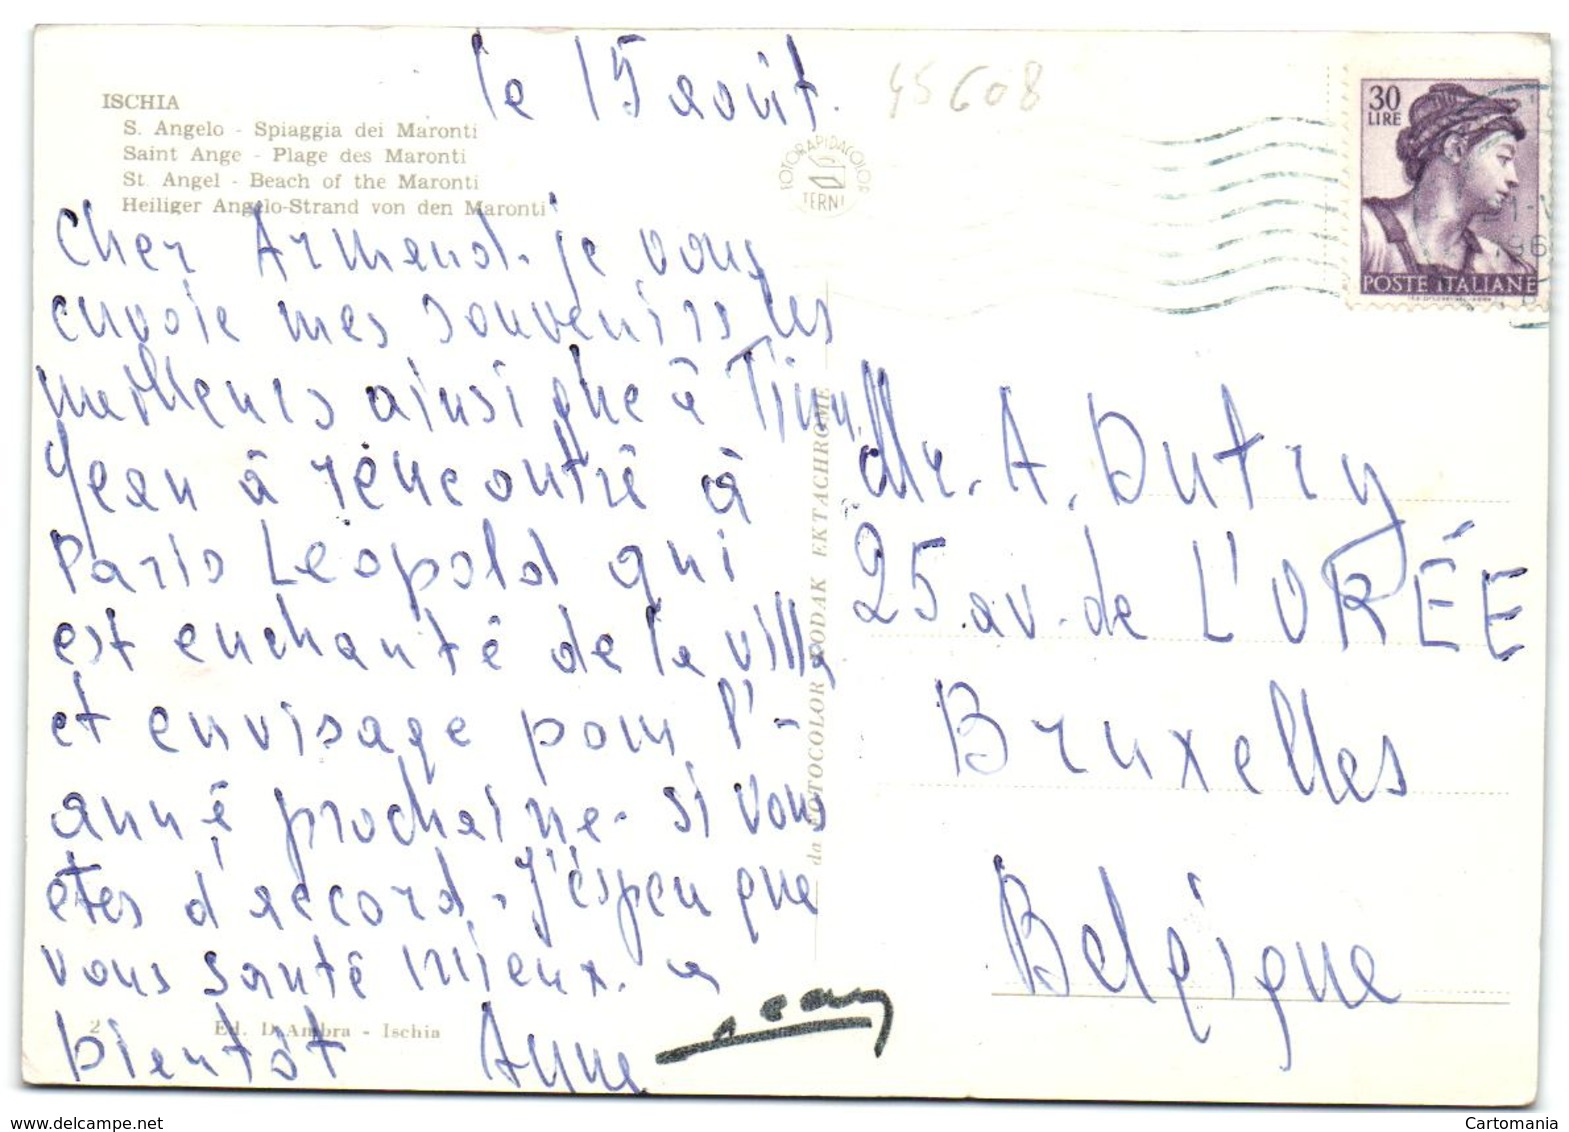 le 15 août.
45608
ISCHIA
S. Angelo - Spiaggia dei Maronti
Saint Ange - Plage des Maronti
St. Angel - Beach of the Maronti
Heiliger Angelo-Strand von den Maronti
FOTORAPIDACOLOR
TERNI
30
LIRE
POSTE ITALIANE
Cher Armand. je vous
envoie mes souvenirs les
meilleurs ainsi que à
Jean à rencontré à
Paris Leopold qui
est enchanté de la villa
et envisage pour l'-
anné prochaine. si vous
êtes d'accord. J'éspeu que
vous santé mieux. a
bientôt Anne
Jean
2 Ed. D'Ambra - Ischia
da FOTOCOLOR KODAK EKTACHROME
Mr. A. Dutry
25 av. de L'ORÉE
Bruxelles
Belgique
www.delcampe.net
Cartomania